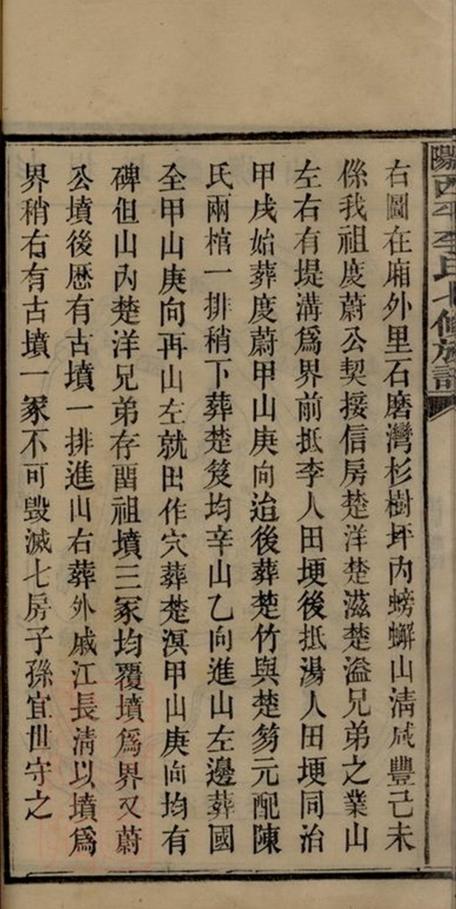 陽西平李氏七修族譜
右圖在廂外里石磨灣杉樹坪內螃蠏山淸咸豐己未
係我祖度蔚公契接信房楚洋楚滋楚溢兄弟之業山
左右有堤溝爲界前抵李人田埂後抵湯人田埂同治
甲戌始葬度蔚甲山庚向迨後葬楚竹與楚芶元配陳
氏兩棺一排稍下葬楚筊均辛山乙向進山左邊葬國
全甲山庚向再山左就田作穴葬楚溟甲山庚向均有
碑但山內楚洋兄弟存畱祖墳三冢均覆墳爲界又蔚
公墳後歷有古墳一排進山右葬外戚江長淸以墳爲
界稍右有古墳一冢不可毀滅七房子孫宜世守之